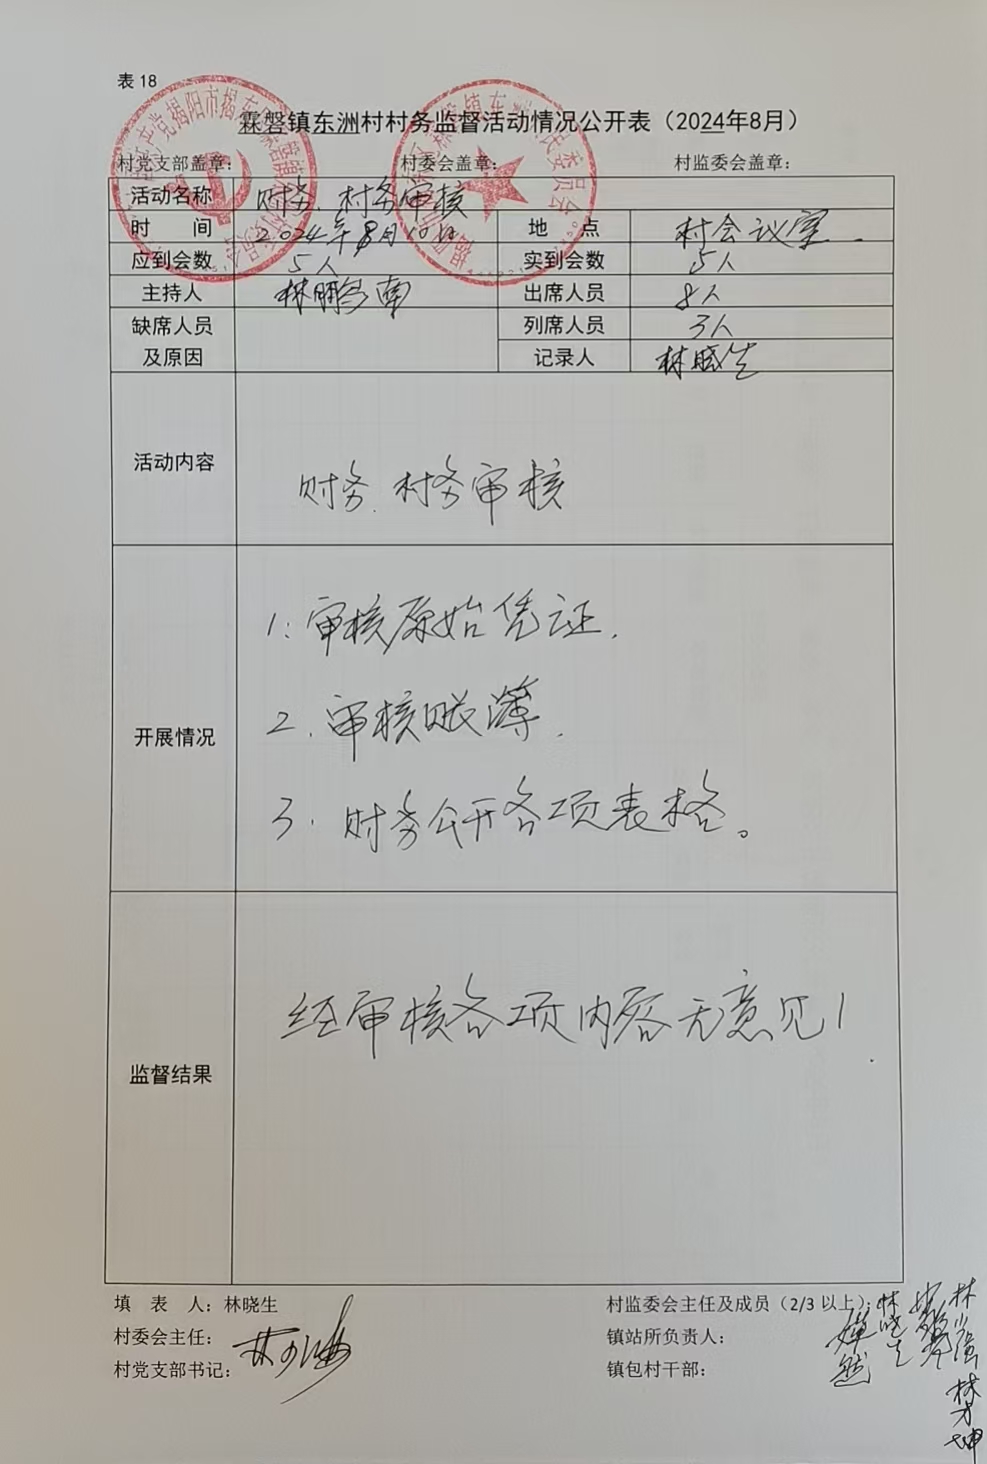 表 18
霖磐镇东洲村村务监督活动情况公开表（2024年8月）
村党支部盖章： 村委会盖章： 村监委会盖章：
活动名称 财务、村务审核
时 间 2024年8月10日 地 点 村会议室
应到会数 5人 实到会数 5人
主持人 林鹏南 出席人员 8人
缺席人员及原因 列席人员 3人
记录人 林晓生
活动内容 财务、村务审核
开展情况
1. 审核原始凭证.
2. 审核账簿.
3. 财务公开各项表格。
监督结果 经审核各项内容无意见!
填 表 人：林晓生 村监委会主任及成员（2/3 以上）：林晓生 林才坤
村委会主任： 镇站所负责人：
村党支部书记： 镇包村干部：